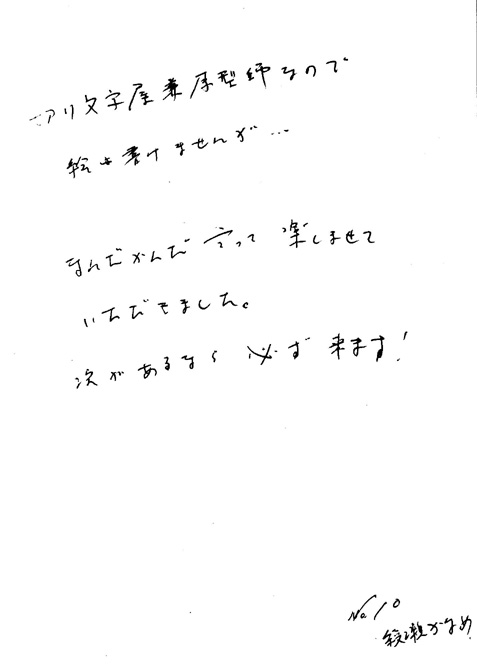 文字屋兼原型師なので
絵は書けませんが…
なんだかんだ言って楽しませて
いただきました。
次があるなら必ず来ます!
No.10
綾瀬かなめ